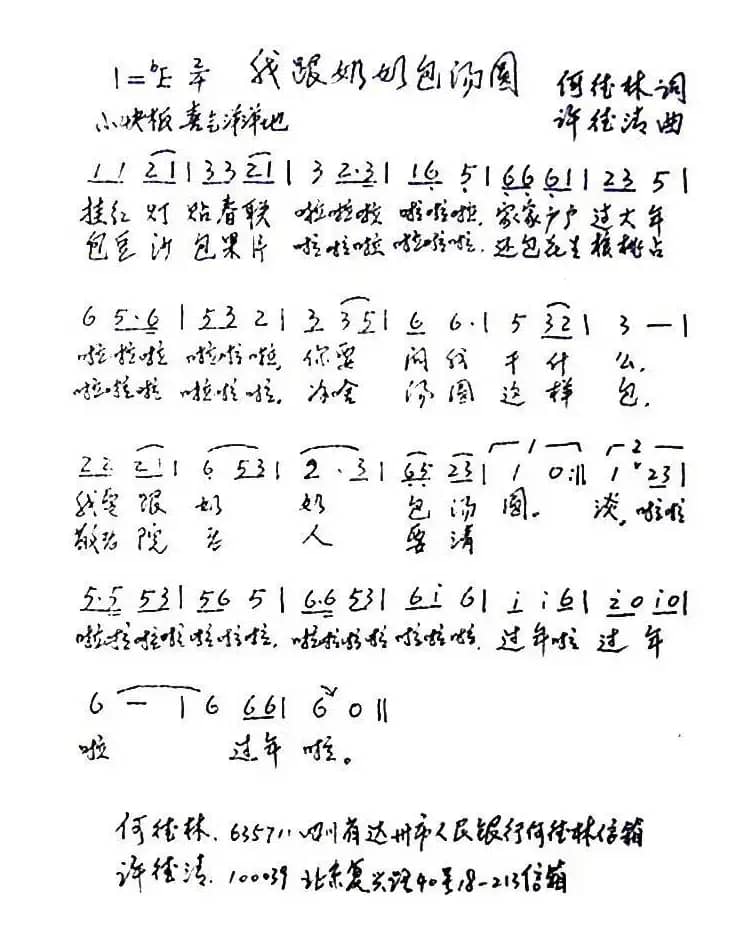 1=♭E 2/4 我跟奶奶包汤圆 何德林词
小快板 喜气洋洋地 许德清曲
1 1 2 1 | 3 3 2 1 | 3 2·3 | 1 6 5 | 6 6 6 1 | 2 3 5 |
挂红灯 贴春联 啦啦啦 啦啦啦. 家家户户过大年
包豆沙 包果片 啦啦啦 啦啦啦. 还包花生核桃占
6 5·6 | 5 3 2 | 3 3 5 | 6 6· | 5 3 2 | 3 — |
啦啦啦 啦啦啦. 你要问我干什么.
啦啦啦 啦啦啦. 为啥汤圆这样包.
2 2 2 1 | 6 5 3 | 2 · 3 | 6 5 2 3 | 1 0 :|| 1 2 3 |
我要跟奶奶包汤圆。 淡。啦啦
敬老院老人要清
5·5 5 3 | 5 6 5 | 6·6 5 3 | 6 i 6 | i i 6 | i 0 i 0 |
啦啦啦啦啦啦啦. 啦啦啦啦啦啦啦. 过年啦过年
6 — | 6 6 6 | 6 0 ||
啦 过年啦。
何德林. 635711 四川省达州市人民银行何德林信箱
许德清. 100039 北京复兴路40号18-213信箱